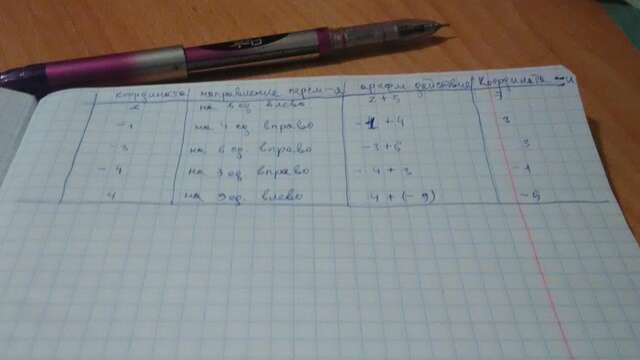 координата направление перем-я арифм действие координата
2 на 5 ед влево 2 + 5 7
-1 на 4 ед вправо -1 + 4 3
-3 на 6 ед вправо -3 + 6 3
-4 на 3 ед вправо -4 + 3 -1
4 на 9 ед. влево 4 + (- 9) -5